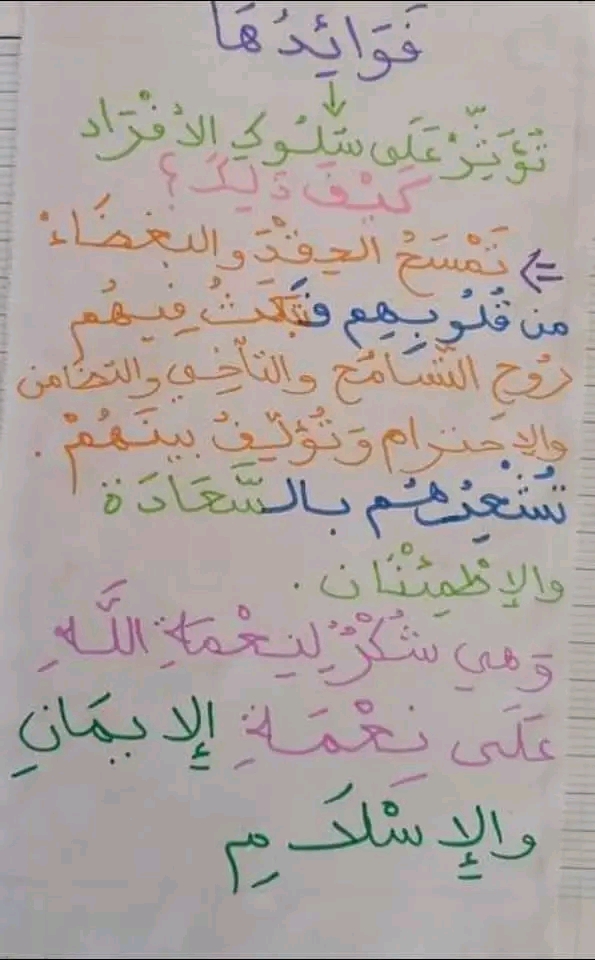 فَوَائِدُهَا
تُؤَثِّرُ عَلَى سُلُوكِ الأَفْرَاد
كَيْفَ ذَلِكَ؟
تَمْسَحُ الحِقْدَ والبغضَاءْ
من قُلُوبِهِم فتَبْعَثُ فِيهُم
رُوح التَّسَامُح والتآخِي والتضامن
والاِحتِرام وَتُؤَلِّفُ بينَهُمْ.
تُشْعِرُهُم بالسَّعَادَة
والاِطْمِئْنَان.
وَهي شُكْرٌ لِنِعْمَةِ اللَّهِ
عَلَى نِعْمَةِ الإِيمَانِ
والإِسْلَامِ